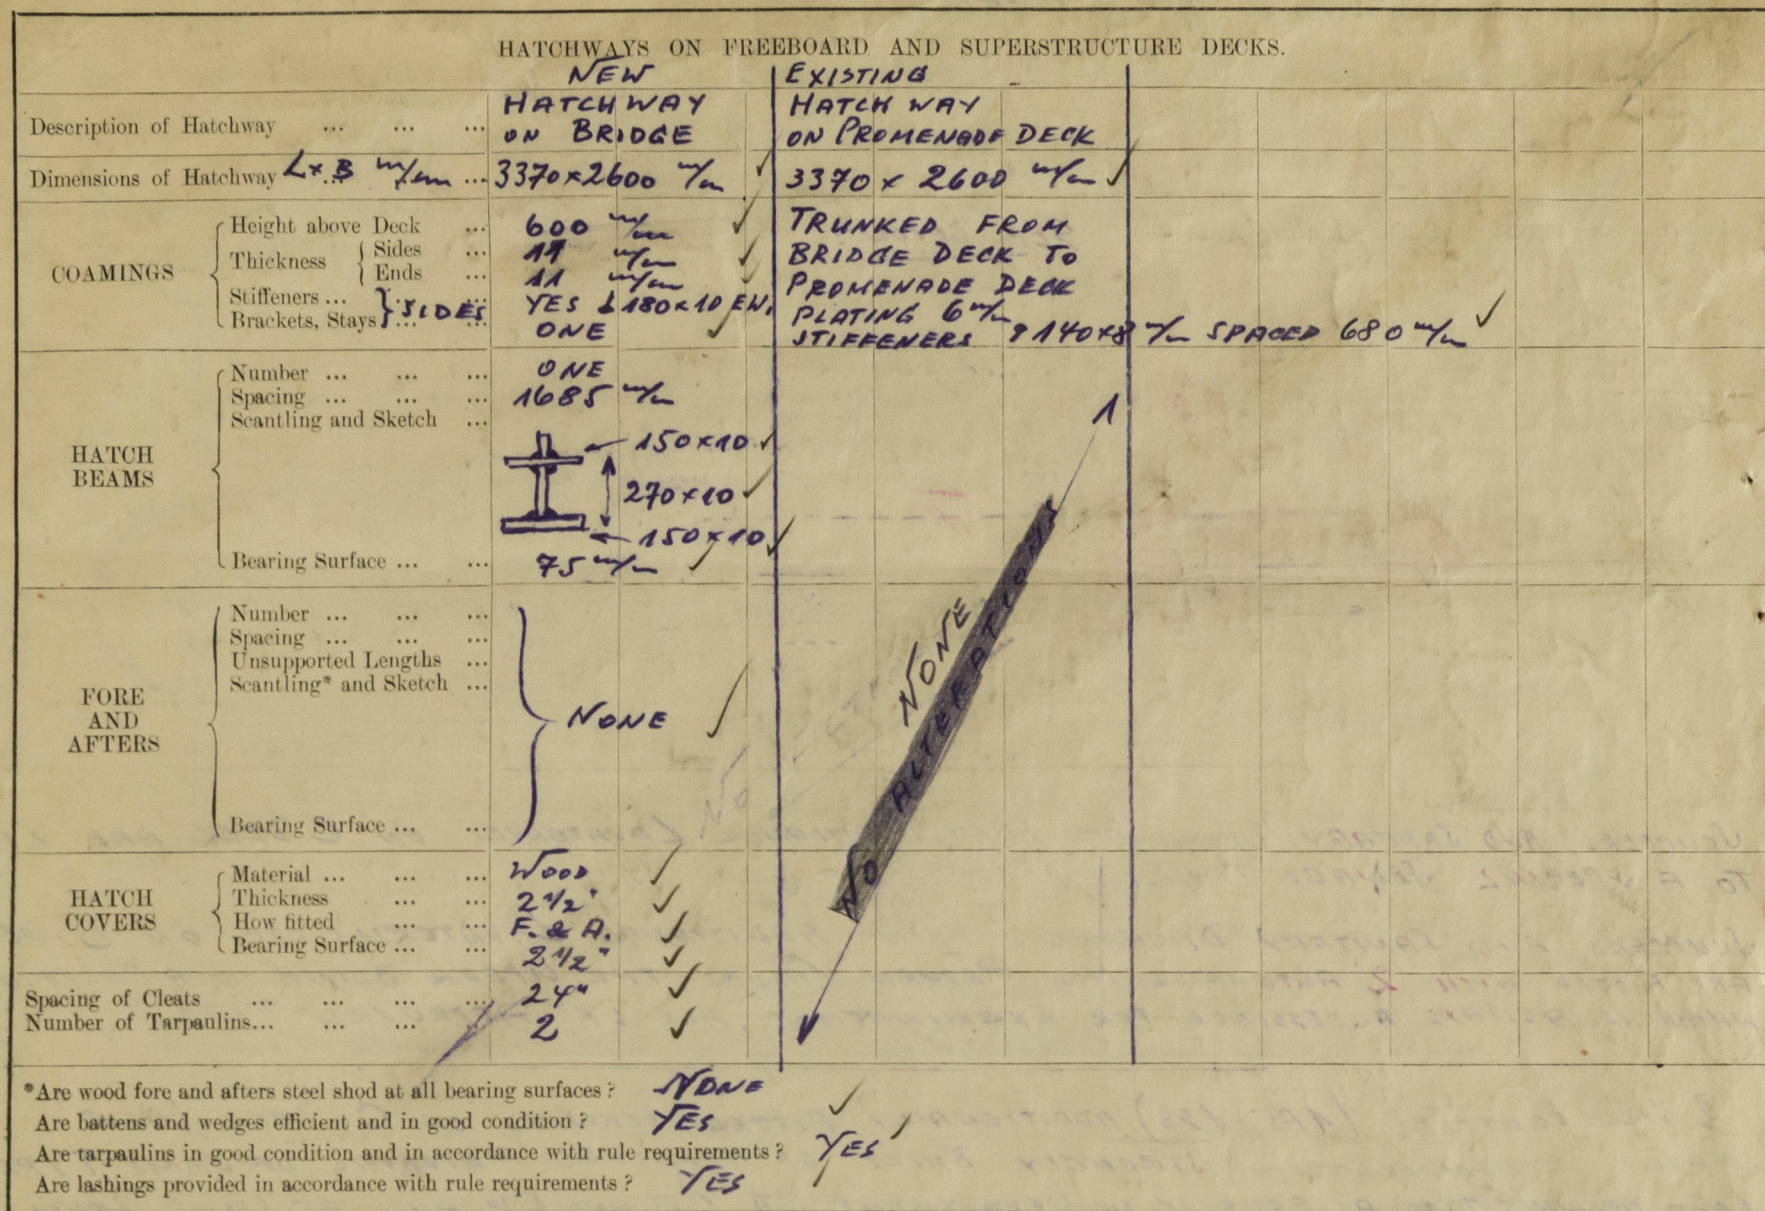 HATCHWAYS ON FREEBOARD AND SUPERSTRUCTURE DECKS.
NEW EXISTING
Description of Hatchway ... ... ... HATCHWAY ON BRIDGE HATCHWAY ON PROMENADE DECK
Dimensions of Hatchway L × B m/m ... 3370 × 2600 m/m ✓ 3370 × 2600 m/m ✓
COAMINGS
Height above Deck ... 600 m/m ✓ TRUNKED FROM
Thickness { Sides ... 11 m/m ✓ BRIDGE DECK TO
Ends ... 11 m/m ✓ PROMENADE DECK
Stiffeners ... } SIDES YES 180×10 EW. PLATING 6 m/m
Brackets, Stays ... ONE ✓ STIFFENERS 140×8 m/m SPACED 680 m/m ✓
HATCH BEAMS
Number ... ... ... ONE
Spacing ... ... ... 1685 m/m
Scantling and Sketch ...
150×10 ✓
270×10 ✓
150×10 ✓
Bearing Surface ... ... 75 m/m ✓
FORE AND AFTERS
Number ... ... ...
Spacing ... ... ...
Unsupported Lengths ...
Scantling* and Sketch ...
NONE ✓
Bearing Surface ... ...
NONE
NO ALTERATIONS
HATCH COVERS
Material ... ... ... WOOD ✓
Thickness ... ... 2 1/2" ✓
How fitted ... ... F. & A. ✓
Bearing Surface ... ... 2 1/2" ✓
Spacing of Cleats ... ... ... ... 24" ✓
Number of Tarpaulins... ... ... ... 2 ✓
*Are wood fore and afters steel shod at all bearing surfaces? NONE
Are battens and wedges efficient and in good condition? YES ✓
Are tarpaulins in good condition and in accordance with rule requirements? YES ✓
Are lashings provided in accordance with rule requirements? YES ✓